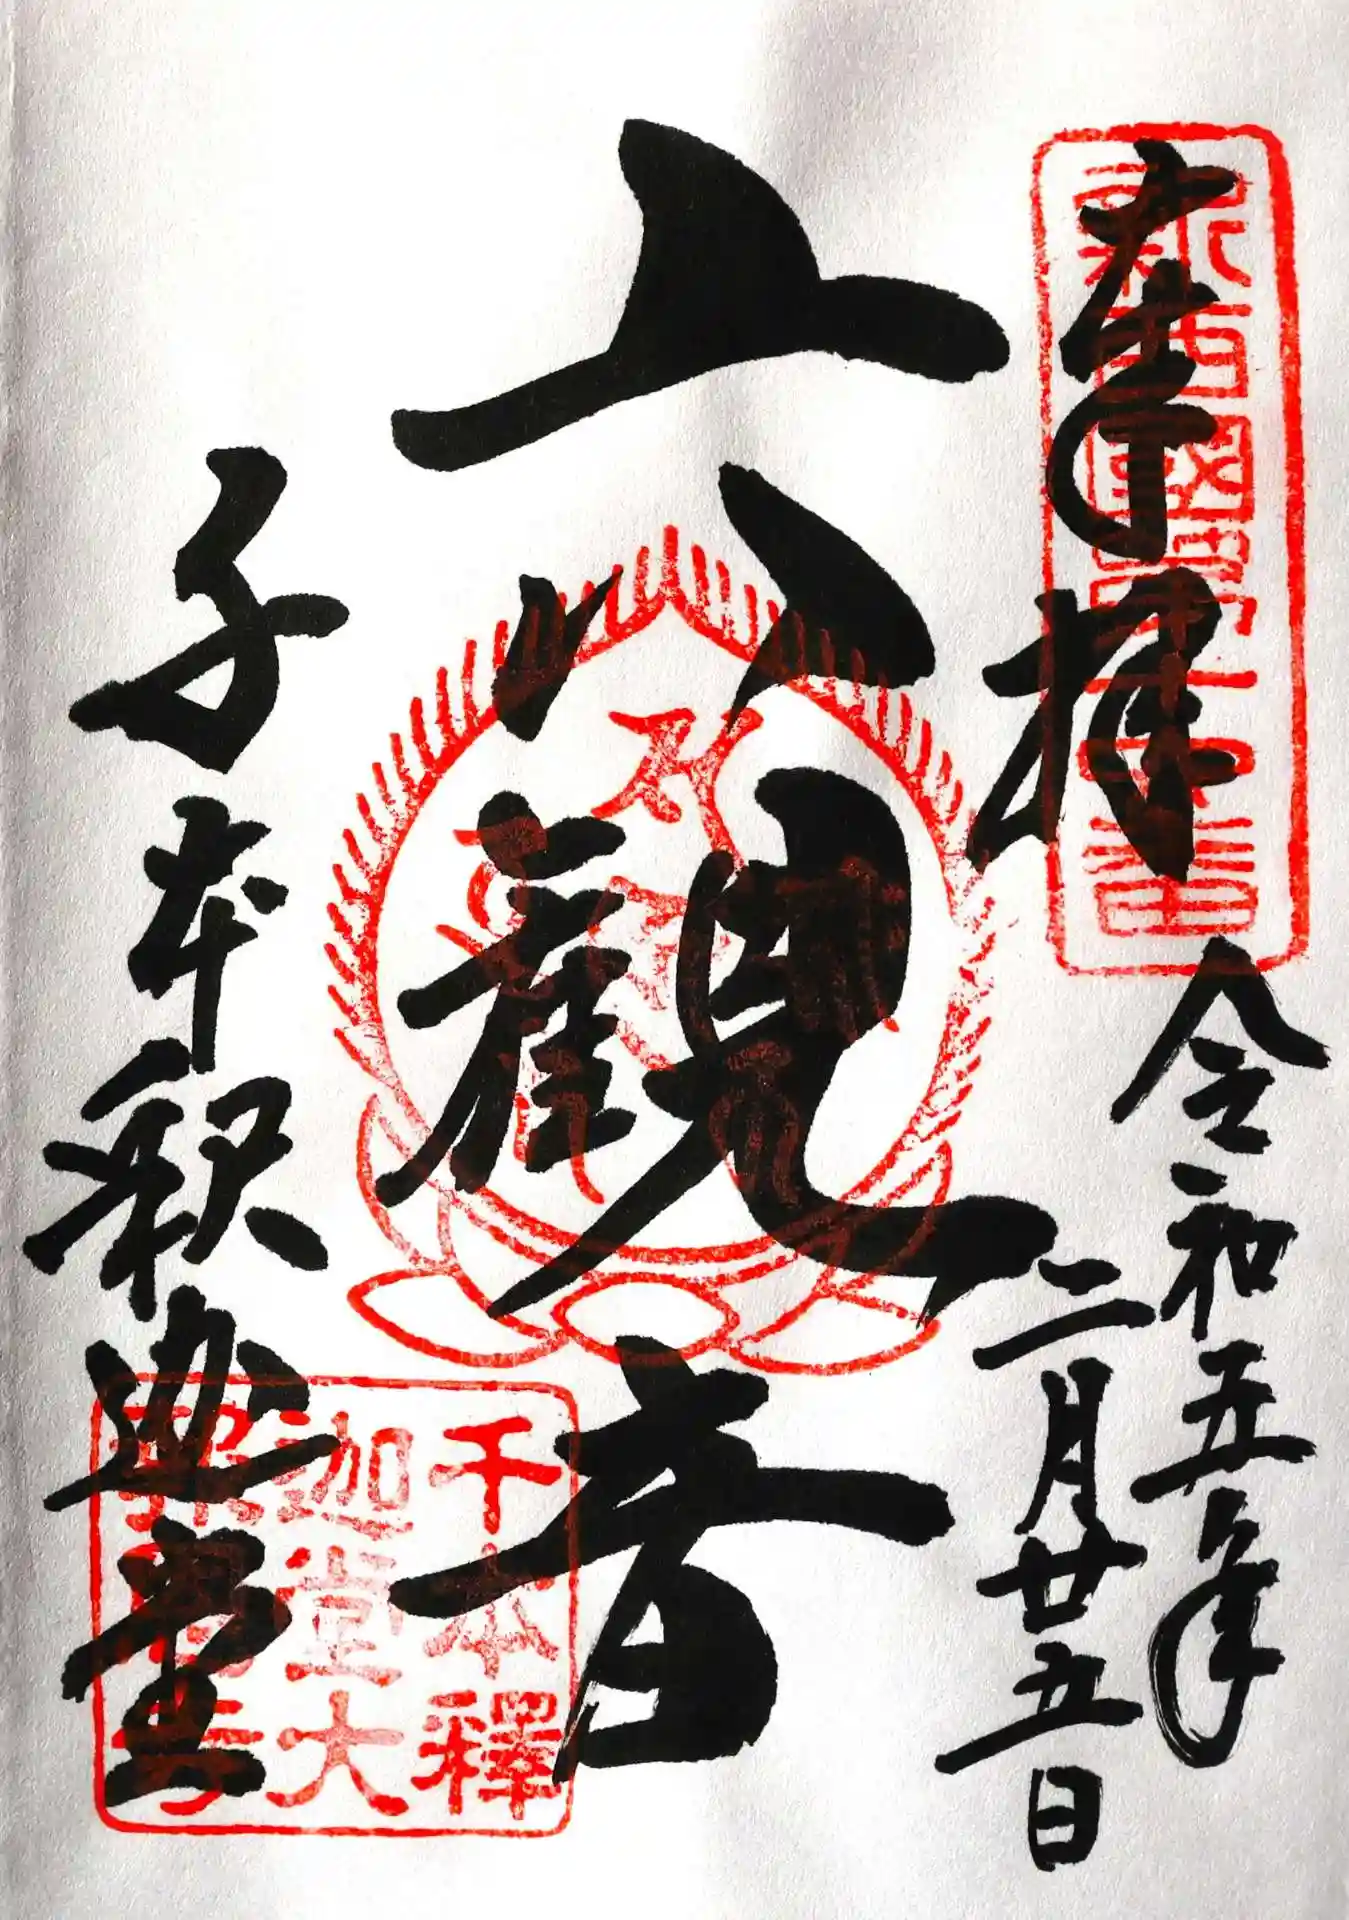 奉拝
新西國第十六番
令和五年
二月廿五日
六観音
千本釈迦堂
千本釋
迦堂大
報恩寺